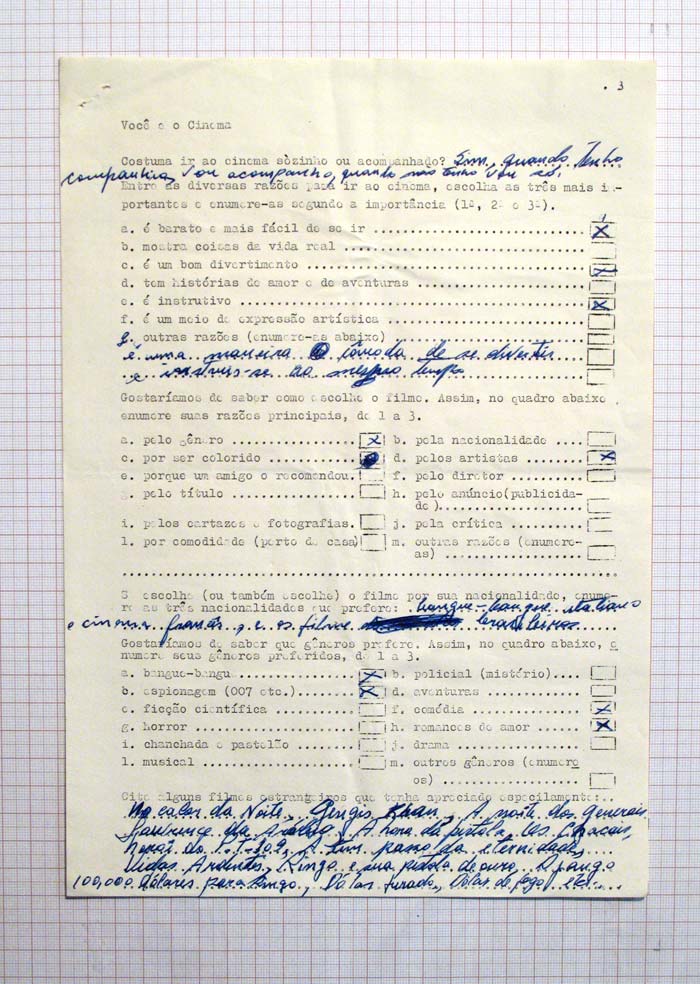 . 3
Você e o Cinema
Costuma ir ao cinema sòzinho ou acompanhado? Sim, quando Tenho
companheira, vou acompanho, quando não tenho vou só.
Entre as diversas razões para ir ao cinema, escolha as três mais im-
portantes e enumere-as segundo a importância (1ª, 2ª e 3ª).
a. é barato e mais fácil de se ir .......... X
b. mostra coisas da vida real ..........
c. é um bom divertimento .......... X
d. tem histórias de amor e de aventuras ..........
e. é instrutivo .......... X
f. é um meio de expressão artística ..........
g. outras razões (enumere-as abaixo) ..........
é uma maneira cômoda de se divertir
e instruir-se ao mesmo tempo
Gostaríamos de saber como escolhe o filme. Assim, no quadro abaixo,
enumere suas razões principais, de 1 a 3.
a. pelo gênero .......... X b. pela nacionalidade ....
c. por ser colorido .......... d. pelos artistas ........ X
e. porque um amigo o recomendou. f. pelo diretor ..........
g. pelo título .......... h. pelo anúncio(publicida-
de )..........
i. pelos cartazes e fotografias. j. pela crítica ..........
l. por comodidade (perto de casa) m. outras razões (enumere-
as) ..........
S escolhe (ou também escolhe) o filme por sua nacionalidade, enume-
re as três nacionalidades que prefere: bangue-bangue italiano
o cinema francês, e os filme brasileiros
Gostaríamos de saber que gêneros prefere. Assim, no quadro abaixo, e
numere seus gêneros preferidos, de 1 a 3.
a. bangue-bangue .......... X b. policial (mistério)....
c. espionagem (007 etc.)....... X d. aventuras ..........
e. ficção científica .......... f. comédia .......... X
g. horror .......... h. romances de amor ...... X
i. chanchada e pastelão ....... j. drama ..........
l. musical .......... m. outros gêneros (enumere
os) ..........
Cite alguns filmes estrangeiros que tenha apreciado especilamente:..
No calor da Noite, Gengis Khan, A noite dos generais
Lawrence da Arábia, A hora da pistola, Os Chacais,
A um passo da eternidade,
Vidas Ardentes, Ringo e sua pistola de ouro, Django
100,000 Dólares para Ringo, Dólar furado, Dólar de fogo, etc...